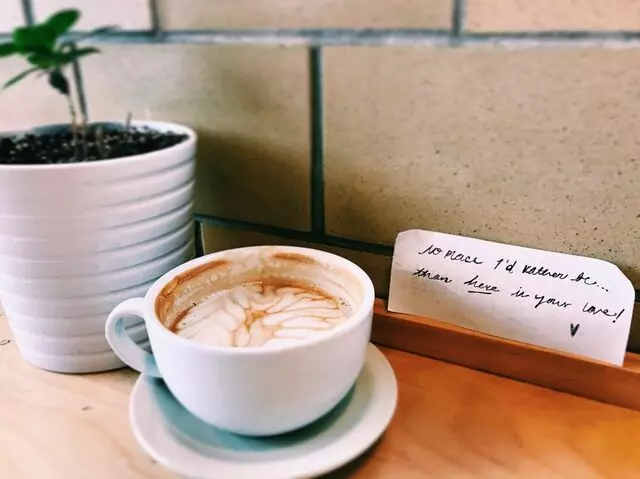 No Place I'd Rather be...
than here in your love!